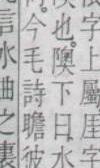 字上屬厓字
奧也隩下曰水
今毛詩瞻彼
言水曲之裏